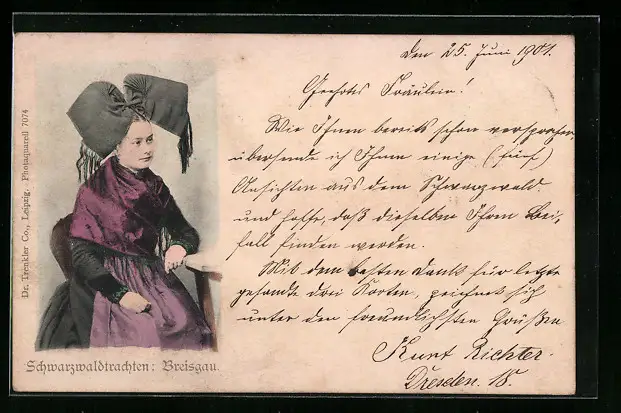 Dr. Trenkler Co., Leipzig. Photaquarell 7074
Schwarzwaldtrachten: Breisgau
den 25. Juni 1901.
Geehrtes Fräulein!
Wie Ihnen bereits schon versprochen,
übersende ich Ihnen einige (fünf)
Ansichten aus dem Schwarzwald
und hoffe, daß dieselben Ihren Bei-
fall finden werden.
Mit dem besten Dank für letzt
gesandte drei Karten, zeichnet sich
unter den freundlichsten Grüßen
Kurt Richter.
Dresden. 18.